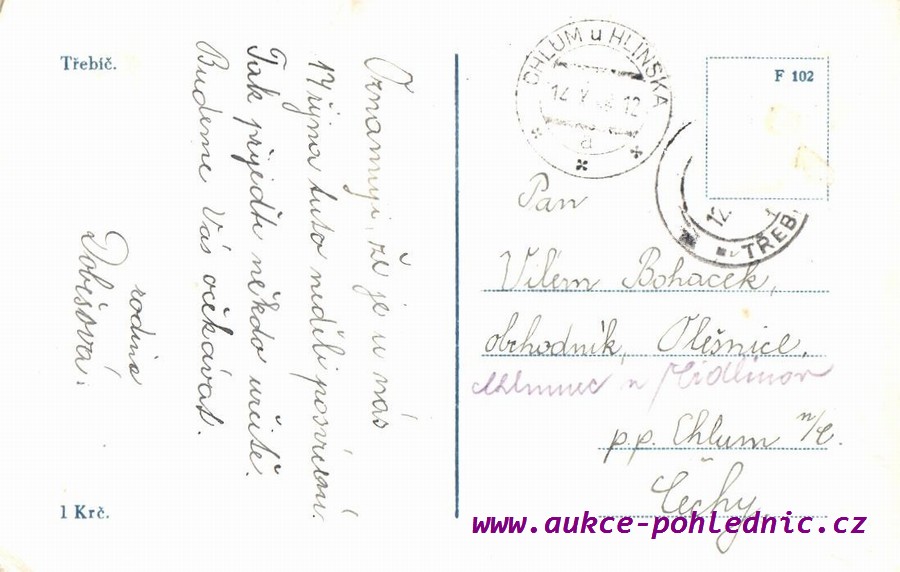 Třebíč.
Oznamuji, že je u nás
17 října tuto neděli posvícení.
Tak přijeďte někdo určitě.
Budeme Vás očekávat.
rodina
Dobešova.
1 Krč.
CHLUM u HLINSKA
14 X 12
a
F 102
12
TŘEB
Pan
Vilém Boháček,
obchodník, Olešnice,
Chlumec n Cidlinou
p.p. Chlum n/C.
Čechy
www.aukce-pohlednic.cz